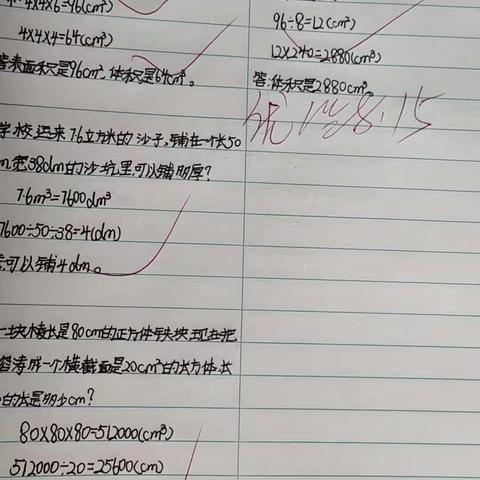 4×4×6=96(cm²)
4×4×4=64(cm³)
答:表面积是96cm²,体积是64cm³。
学校运来7.6立方米的沙子,铺在一个长50
m,宽38dm的沙坑里可以铺多厚?
7.6m³=7600dm³
7600÷50÷38=4(dm)
可以铺4dm。
一块棱长是80cm的正方体铁块,现在把
熔铸成一个横截面是20cm²的长方体,长
的长是多少cm?
80×80×80=512000(cm³)
512000÷20=25600(cm)
96÷8=12(cm²)
12×240=2880(cm³)
答:体积是2880cm³。
优 8.15